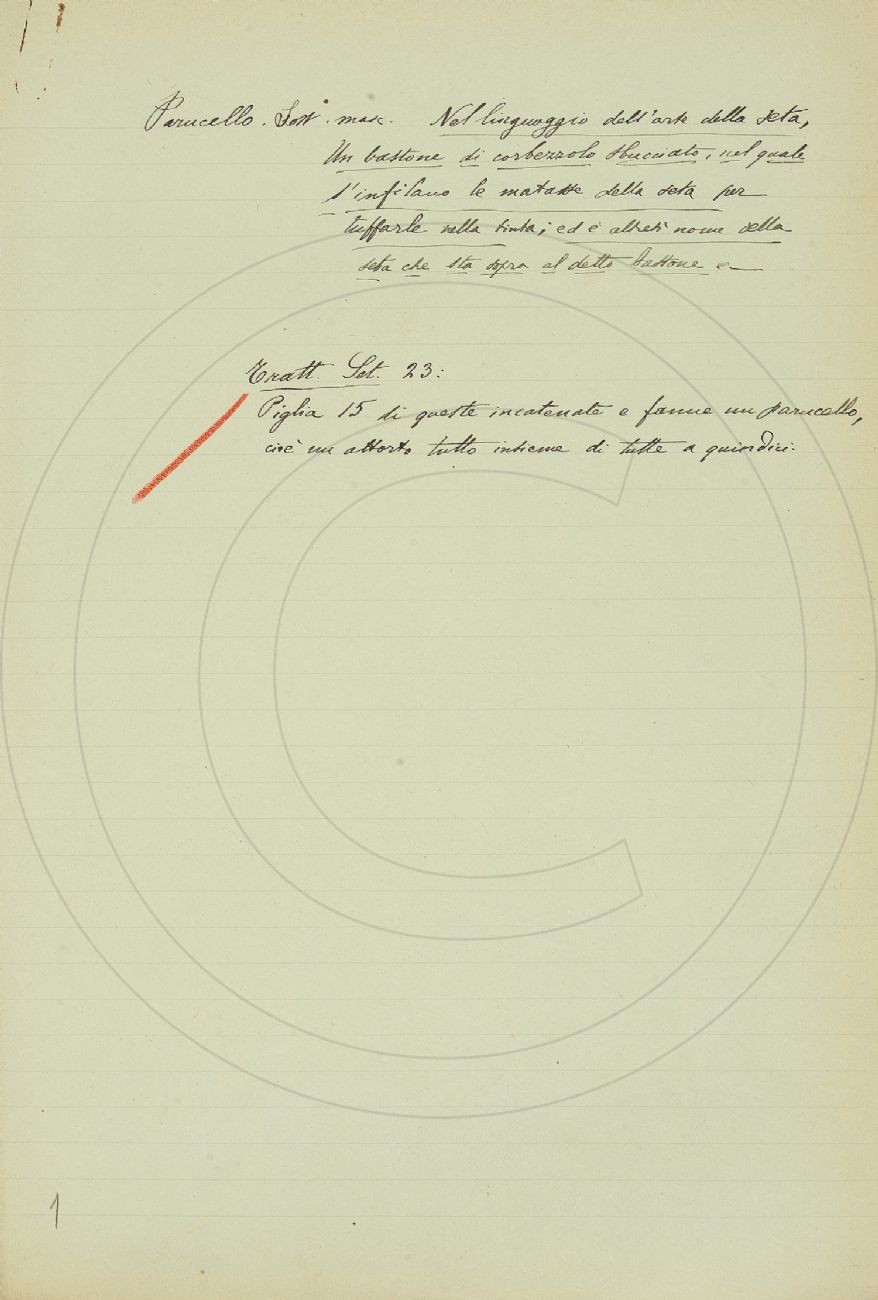 Parucello. Sost. masc. Nel linguaggio dell'arte della seta,
Un bastone di corbezzolo sbucciato, nel quale
s'infilano le matasse della seta per
tuffarle nella tinta; ed è altresì nome della
seta che sta sopra al detto bastone.—
Tratt. Set. 23:
Piglia 15 di queste incatenate e fanne un parucello,
cioè un attorto tutto insieme di tutte a quindici.
1